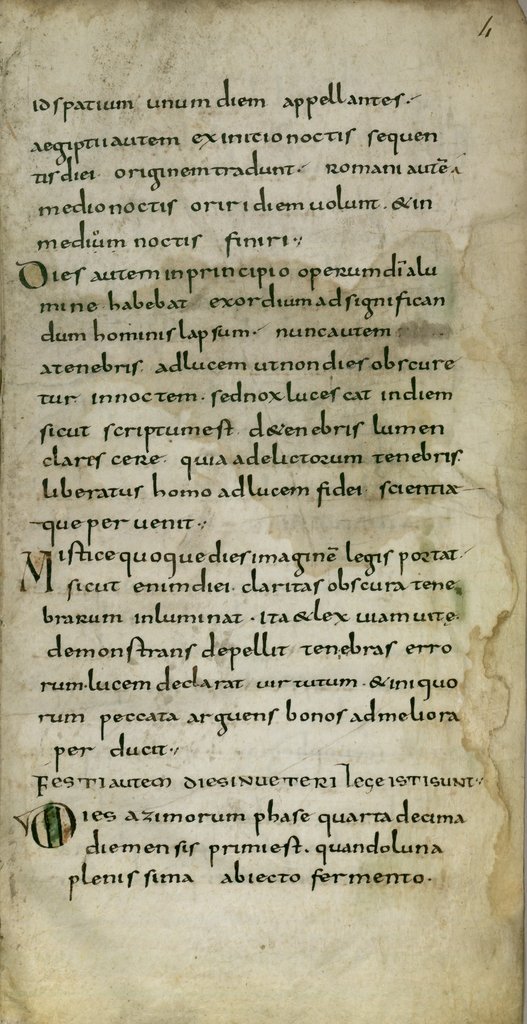 4
id spatium unum diem appellantes.
aegiptii autem ex inicio noctis sequen
tis diei originem tradunt. romani autē
medio noctis oriri diem uolunt. & in
medium noctis finiri.
Dies autem in principio operum dī a lu
mine habebat exordium ad significan
dum hominis lapsum. nunc autem
a tenebris ad lucem ut non dies obscure
tur in noctem. sed nox lucescat in diem
sicut scriptum est d& enebris lumen
clarescere quia a delictorum tenebris
liberatus homo ad lucem fidei scientia
que peruenit.
Mistice quoque dies imaginē legis portat
sicut enim diei claritas obscura tene
brarum inluminat. ita & lex uiam uite
demonstrans depellit tenebras erro
rum. lucem declarat uirtutum. & iniquo
rum peccata arguens bonos ad meliora
perducit.
FESTI autem DIES IN UETERI lege ISTI SUNT.
Dies azimorum phase quarta decima
die mensis primi est. quando luna
plenissima abiecto fermento.